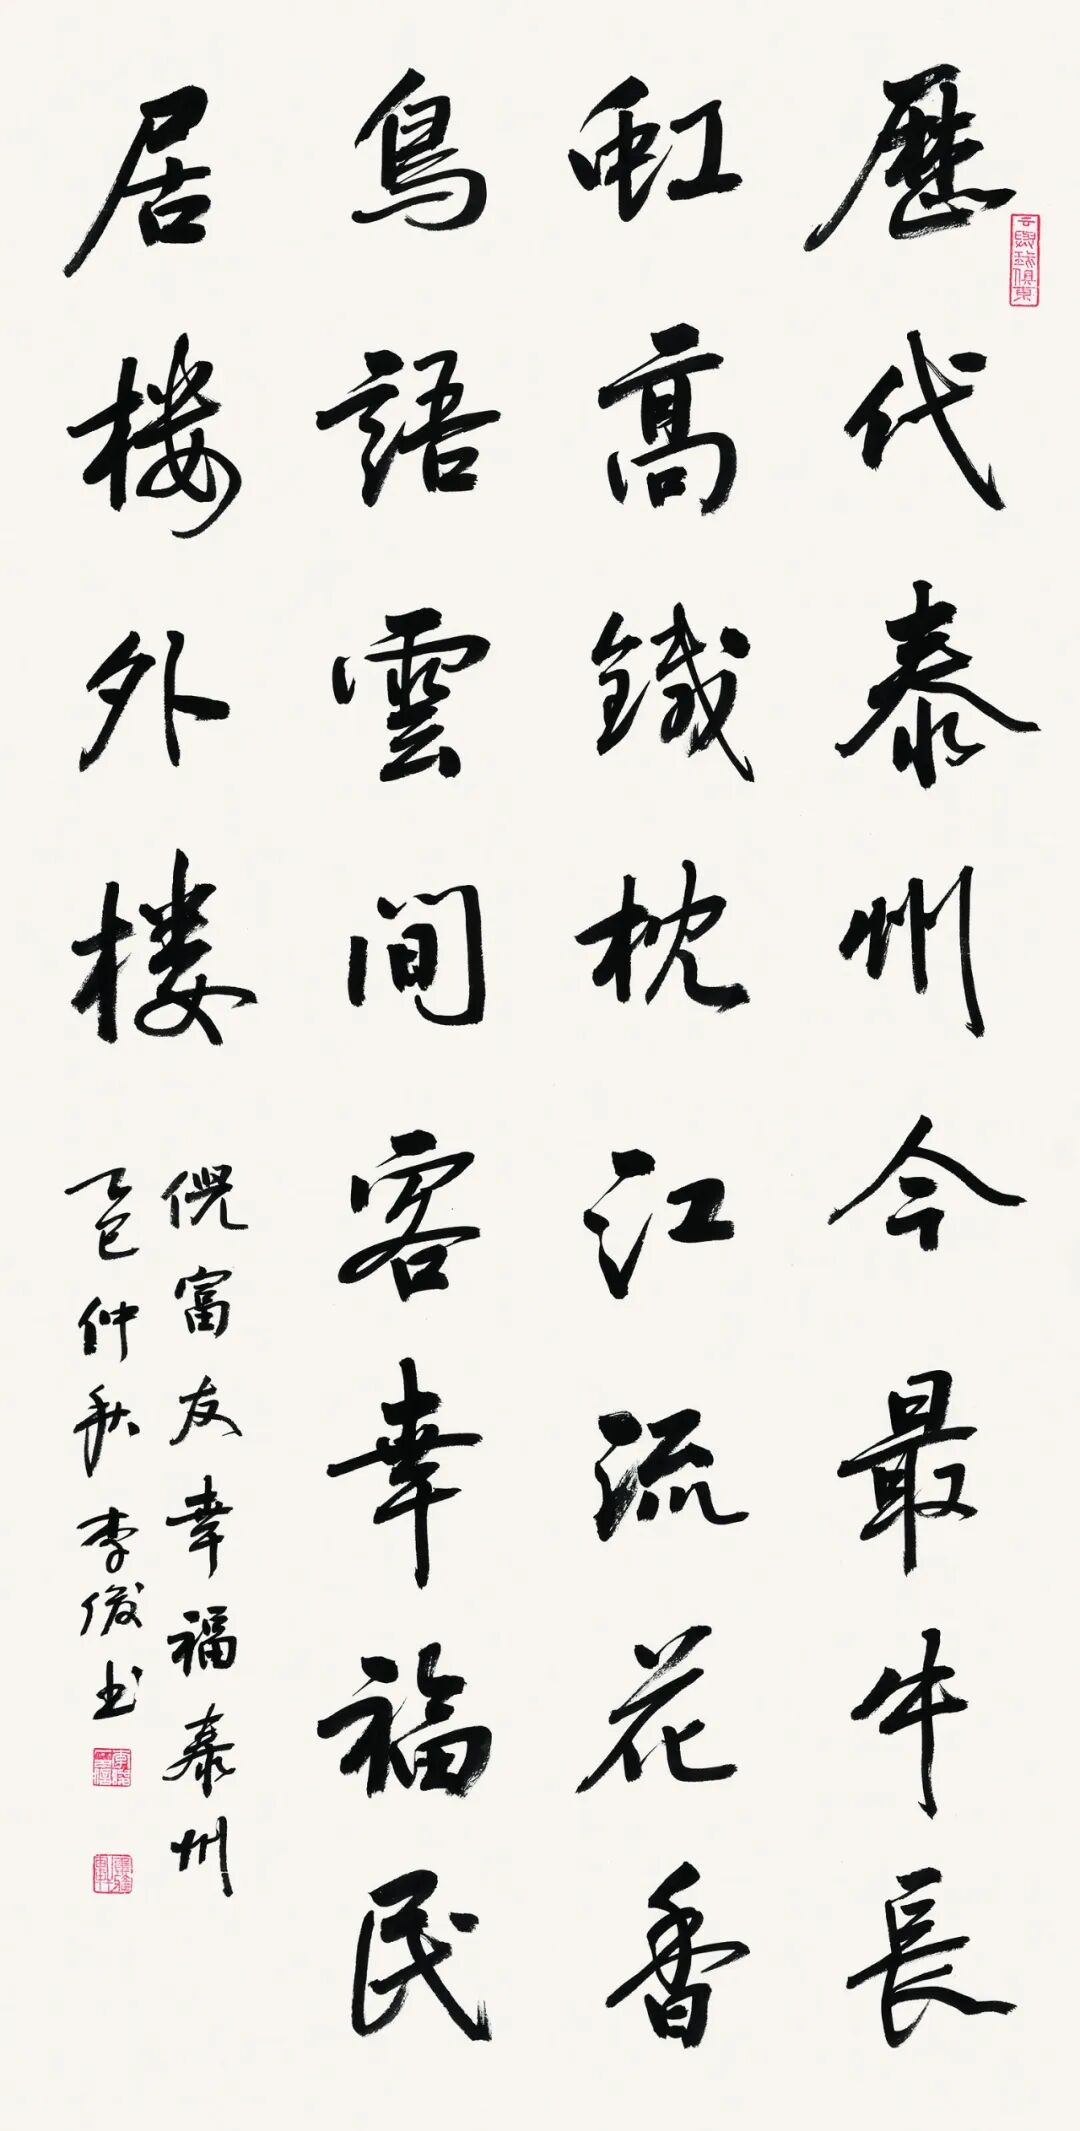 歷代泰州今最牛長
虹高鐵枕江流花香
鳥語雲間客幸福民
居楼外楼
倪富友幸福泰州
乙巳仲秋李俊书